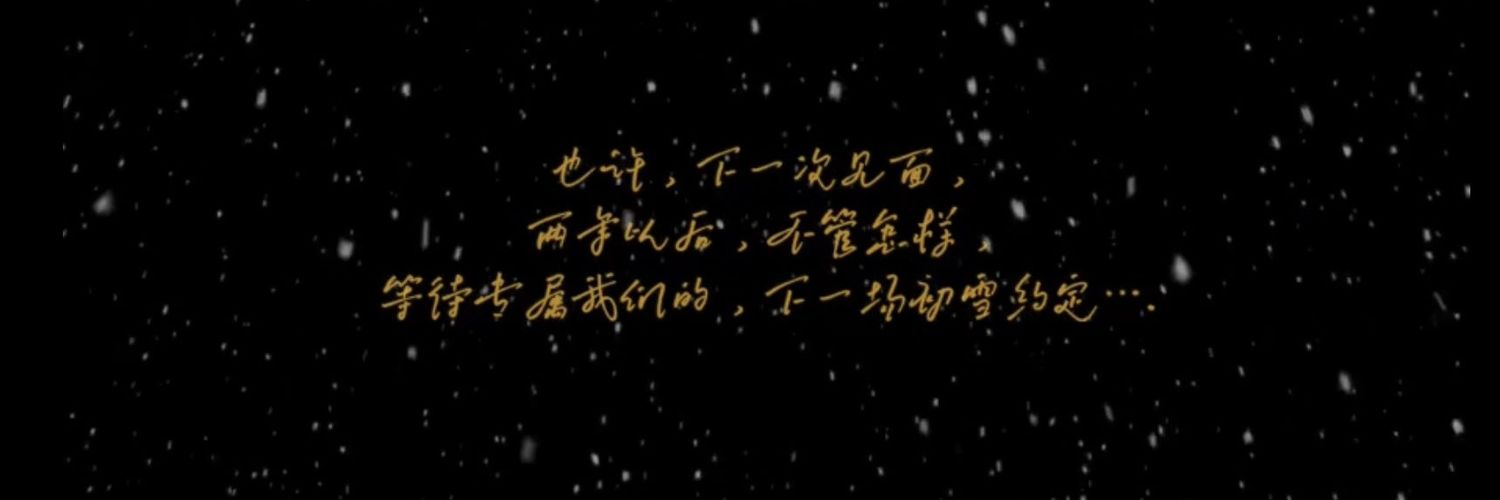 也许，下一次见面，
两年以后，不管怎样，
等待专属我们的，下一场初雪约定….